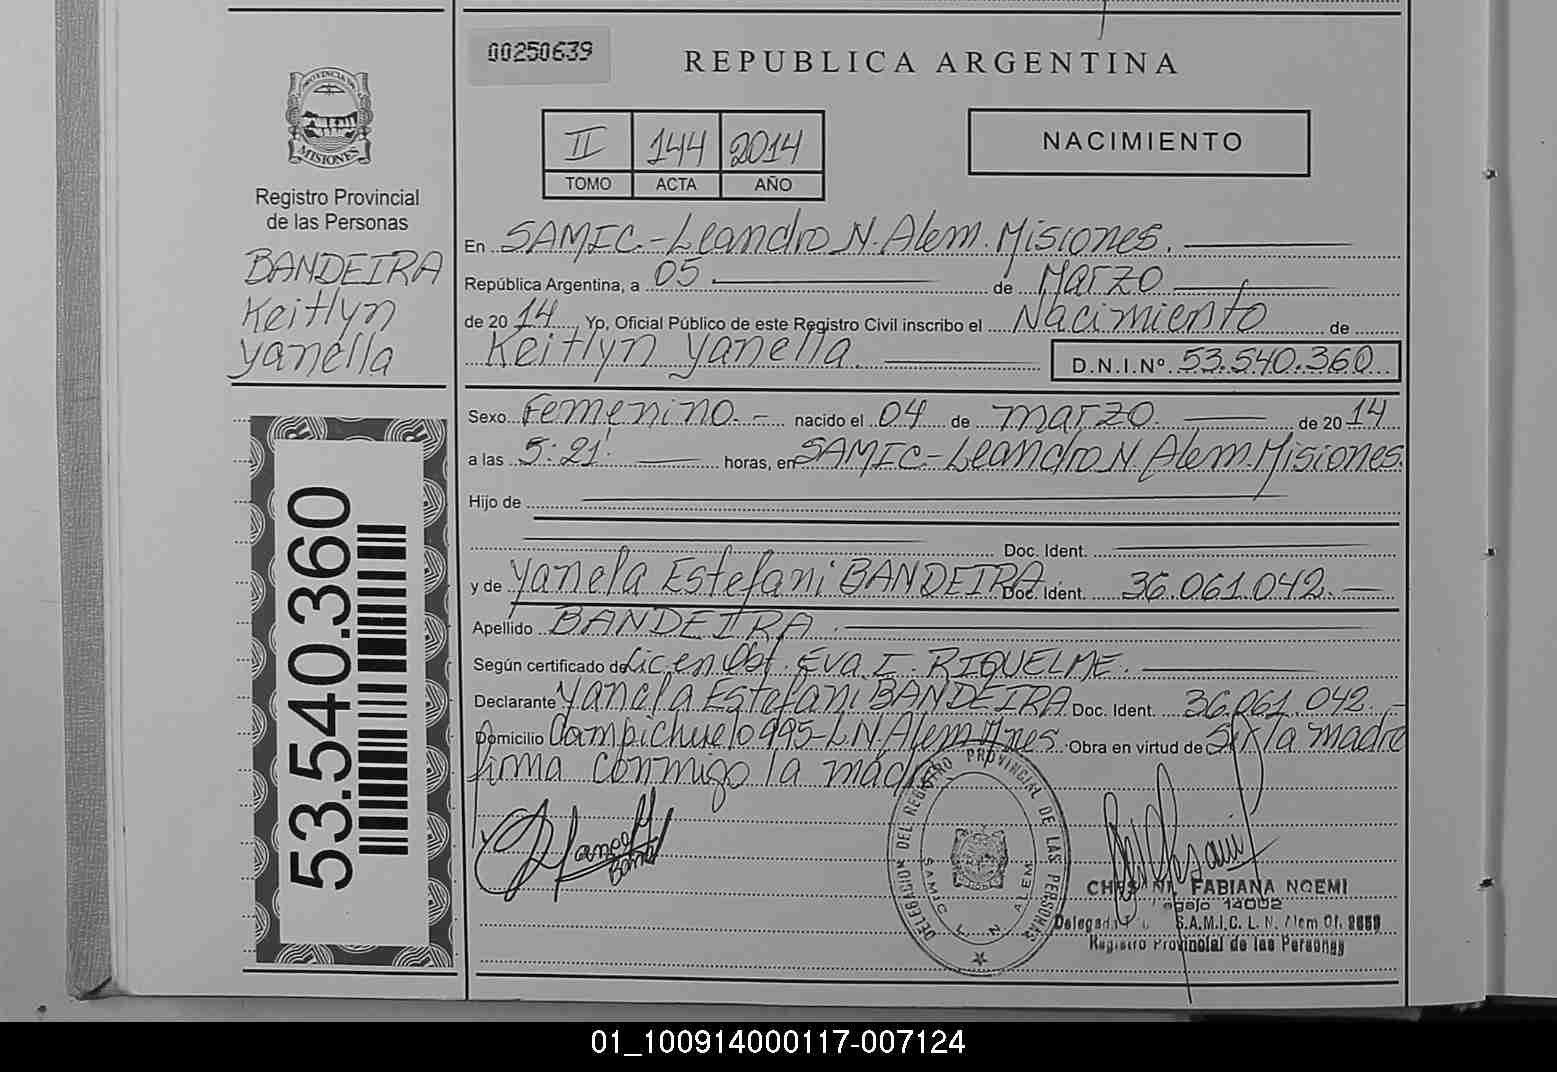 00250639
REPUBLICA ARGENTINA
PROVINCIA DE
MISIONES
Registro Provincial
de las Personas
BANDEIRA
Keitlyn
Yanella
II 144 2014
TOMO ACTA AÑO
NACIMIENTO
En SAMIC.-Leandro N. Alem. Misiones.
República Argentina, a 05 de Marzo
de 2014 Yo, Oficial Público de este Registro Civil inscribo el Nacimiento de
Keitlyn Yanella. D.N.I.Nº 53.540.360
Sexo Femenino.- nacido el 04 de marzo. de 2014
a las 5:21' horas, en SAMIC.-Leandro N Alem. Misiones.
Hijo de
Doc. Ident.
y de Yanela Estefani BANDEIRA Doc. Ident. 36.061.042.-
Apellido BANDEIRA.
Según certificado de Lic en Obst. Eva I. RIQUELME.
Declarante Yanela Estefani BANDEIRA Doc. Ident. 36.061.042.-
Domicilio Campichuelo 995-L.N.Alem.Mnes. Obra en virtud de Ser la madre
firma conmigo la madre
53.540.360
DELEGACION DEL REGISTRO PROVINCIAL DE LAS PERSONAS
SAMIC L. N. ALEM
FABIANA NOEMI
Legajo 14002
S.A.M.I.C. L. N. Alem Of.
Registro Provincial de las Personas
01_100914000117-007124